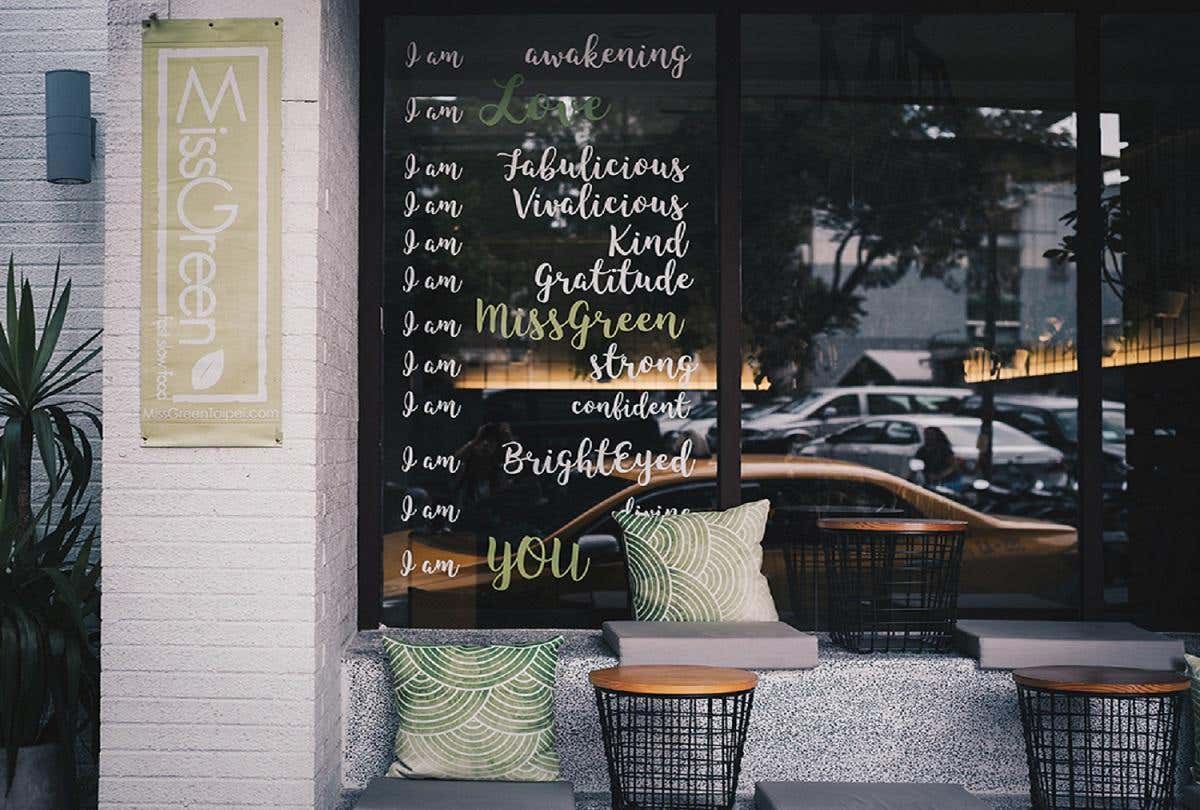 MissGreen
fast slow food
MissGreenTaipei.com
I am awakening
I am Love
I am Fabulicious
I am Vivalicious
I am Kind
I am Gratitude
I am MissGreen
I am strong
I am confident
I am BrightEyed
I am divine
I am YOU